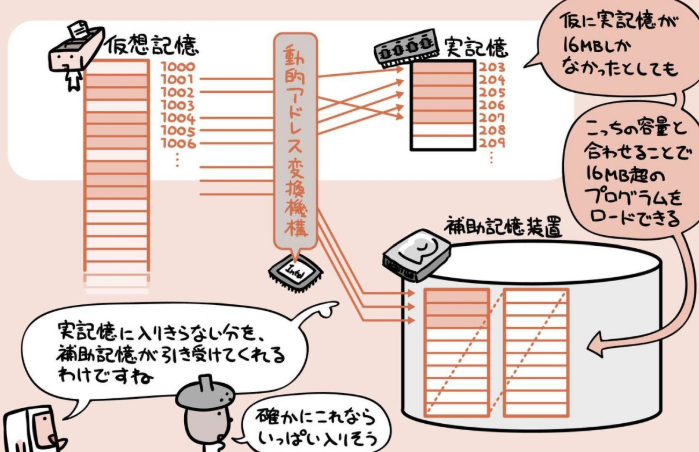 仮想記憶
1000
1001
1002
1003
1004
1005
1006
⋮
動的アドレス変換機構
Intel
実記憶
203
204
205
206
207
208
209
⋮
仮に実記憶が
16MBしか
なかったとしても
こっちの容量と
合わせることで
16MB超の
プログラムを
ロードできる
補助記憶装置
実記憶に入りきらない分を、
補助記憶が引き受けてくれる
わけですね
確かにこれなら
いっぱい入りそう